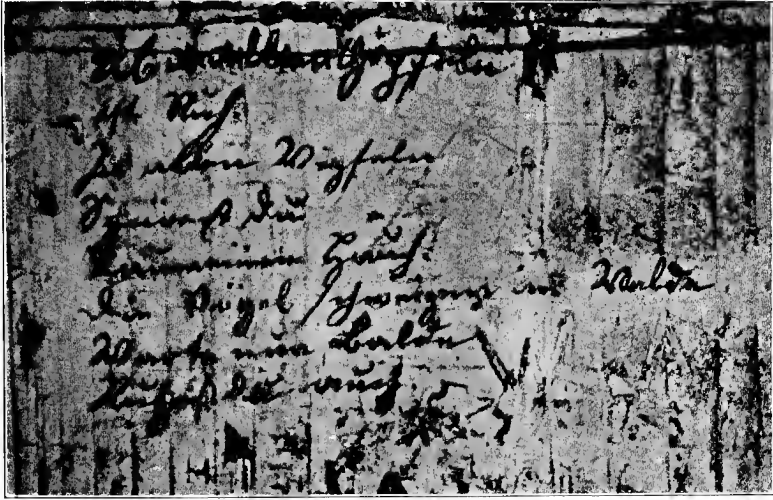 Ueber allen Gipfeln
ist Ruh
In allen Wipfeln
Spürest du
Kaum einen Hauch.
Die Vögel schweigen im Walde
Warte nur Balde
Ruhest du auch